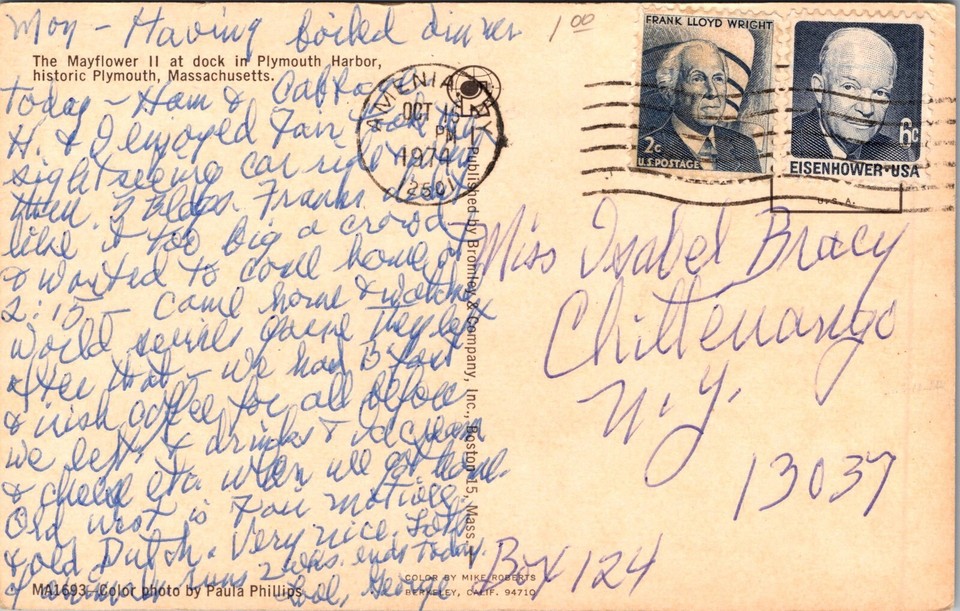 Mon - Having boiled dinner
1 00
The Mayflower II at dock in Plymouth Harbor,
historic Plymouth, Massachusetts.
Today - Ham &
H. & I enjoyed Fair
sight seeing car ride
then 3 Bldgs. Franks
like it too big a crowd
& wanted to come home at
2:15 - Came home & watched
World series game They left
after that - We had B
& Irish coffee for all before
we left & drinks & Ice cream
& cheese etc. when we got home.
Old West is Fair motive
& old Dutch. Very nice. Lots
2 was. ends Today.
Love, George
MA1693-Color photo by Paula Phillips
AMENIA, NY
OCT
PM
1974
12501
Published by Bromley & Company, Inc., Boston 15, Mass.
COLOR BY MIKE ROBERTS
BERKELEY, CALIF. 94710
FRANK LLOYD WRIGHT
2c
U.S. POSTAGE
6c
EISENHOWER·USA
U.S.A.
Miss Isabel Bracy
Chittenango
N.Y.
13037
Box 124